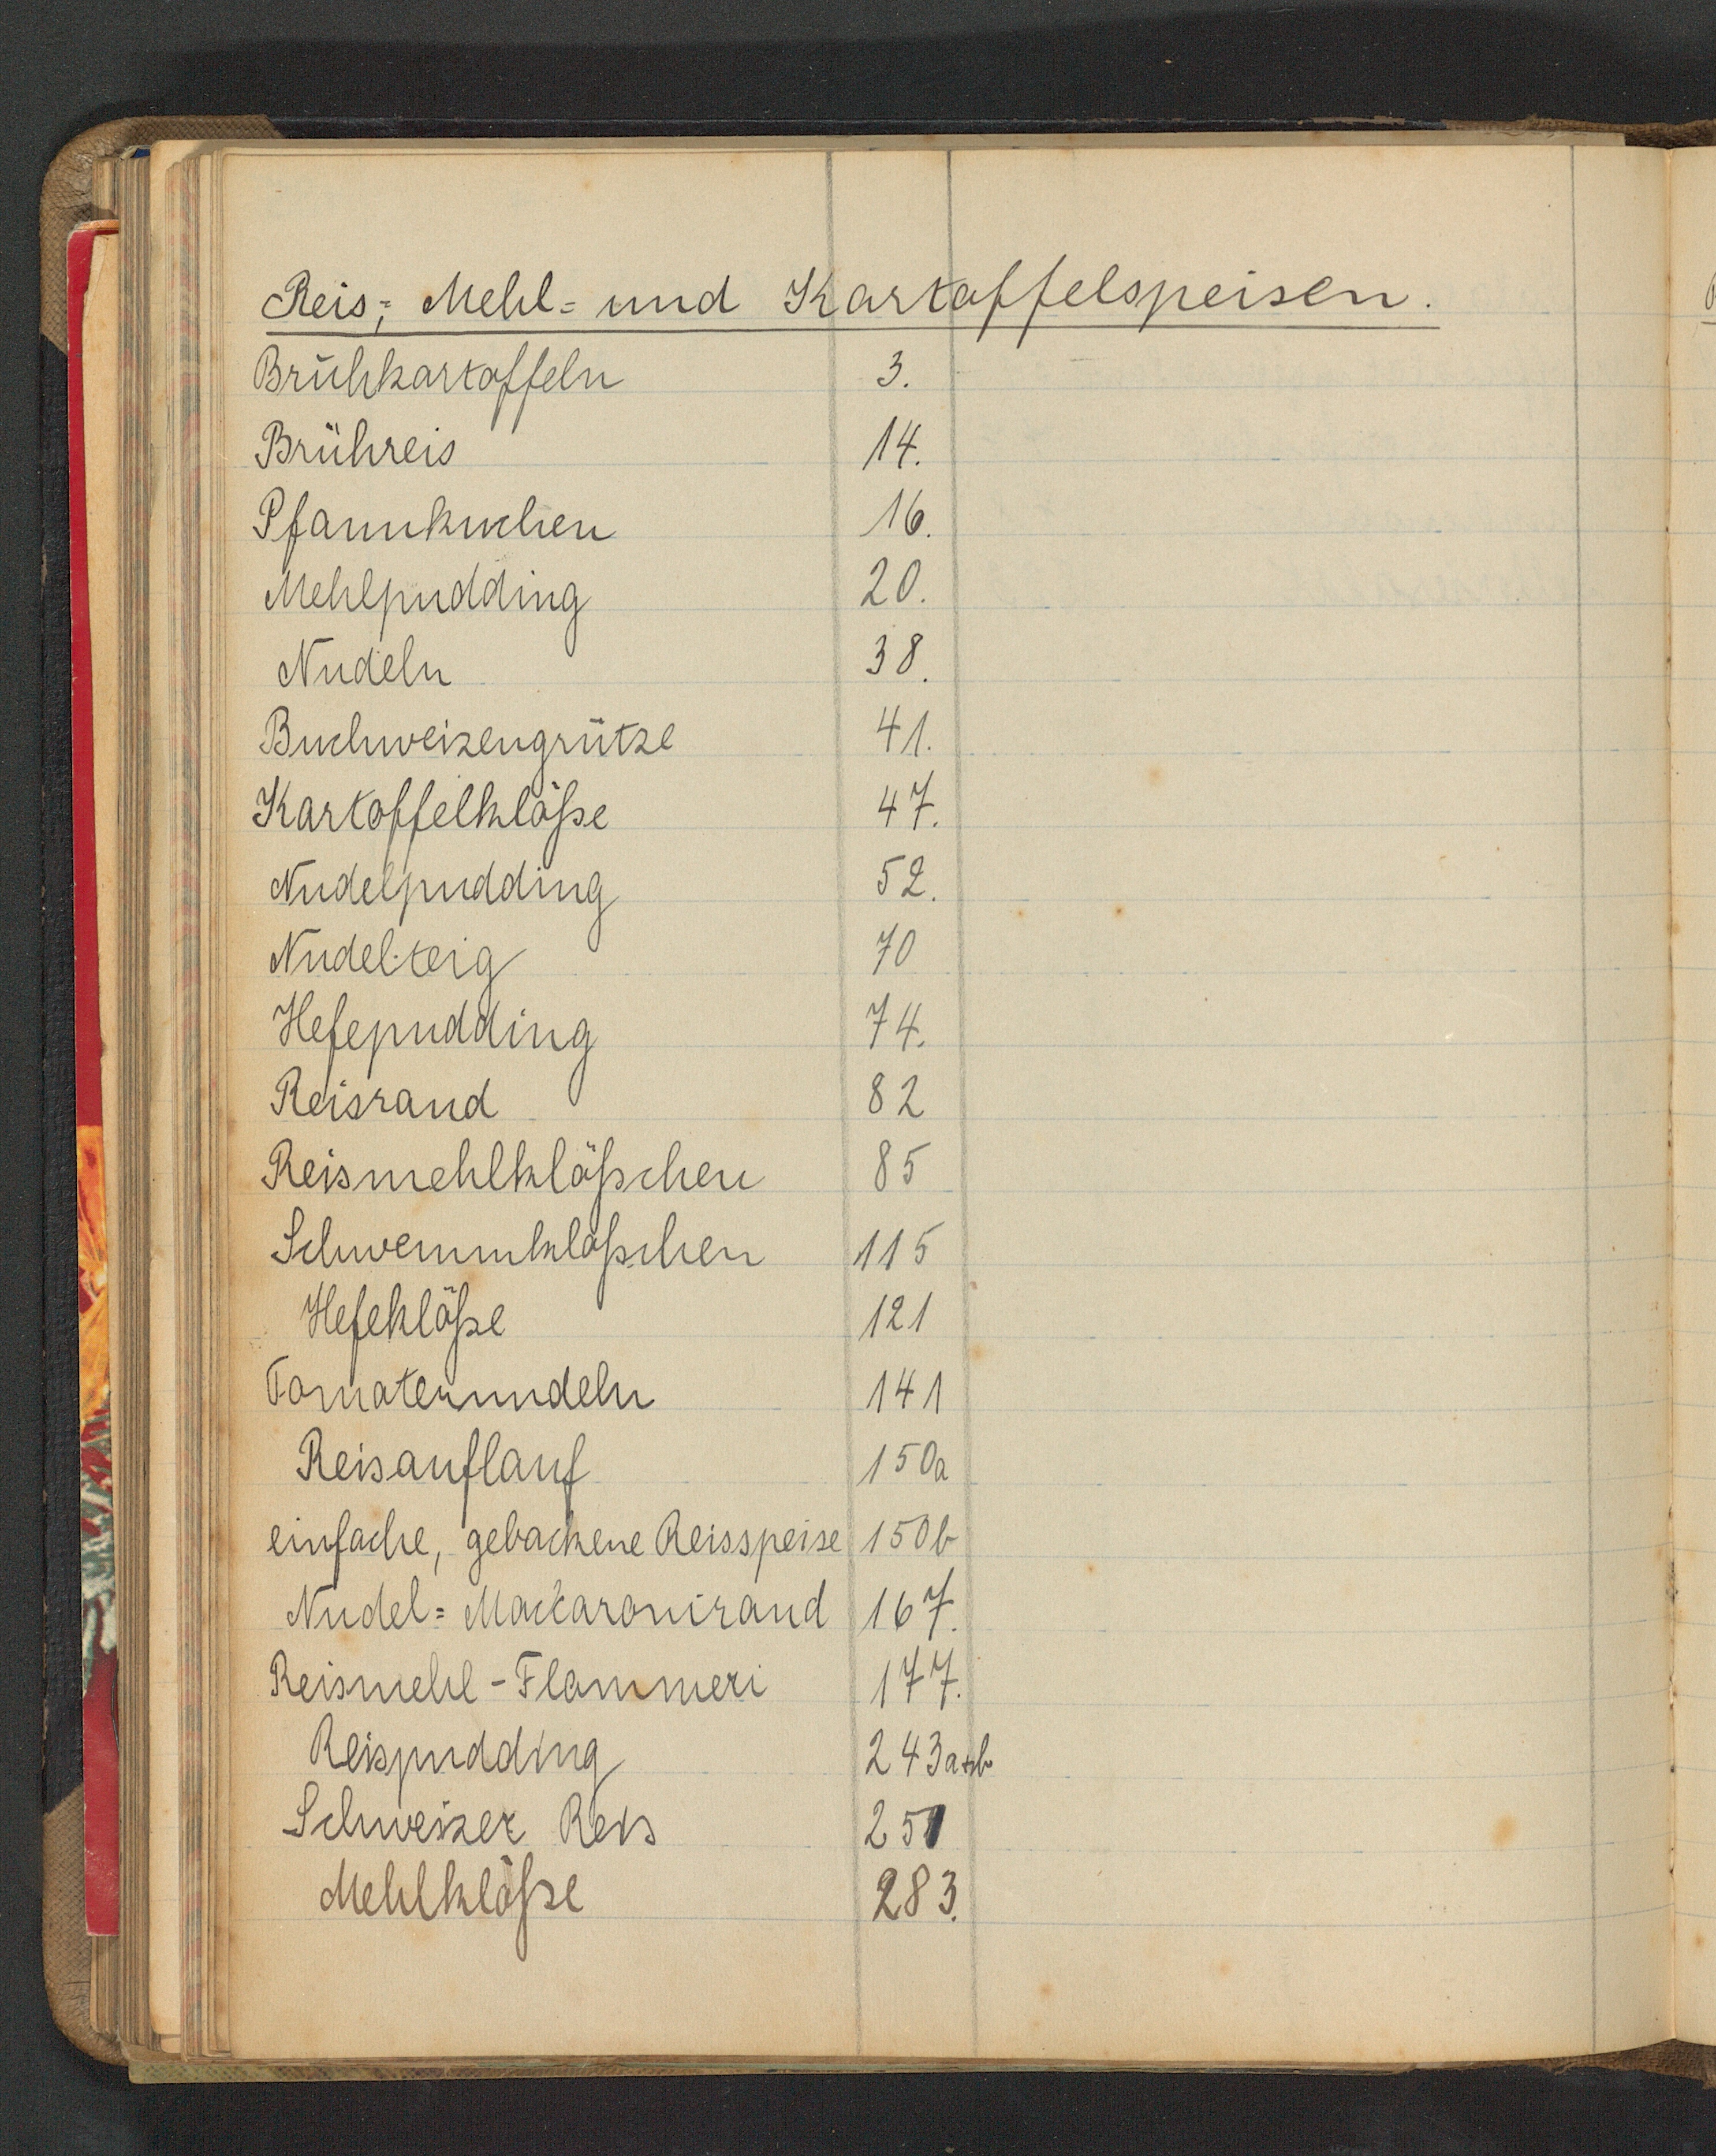 Reis-, Mehl- und Kartoffelspeisen.
Brühkartoffeln 3.
Brühreis 14.
Pfannkuchen 16.
Mehlpudding 20.
Nudeln 38.
Buchweizengrütze 41.
Kartoffelklöße 47.
Nudelpudding 52.
Nudelteig 70
Hefepudding 74.
Reisrand 82
Reismehlklößchen 85
Schwemmklößchen 115
Hefeklöße 121
Tomatennudeln 141
Reisauflauf 150a
einfache, gebackene Reisspeise 150b
Nudel= Mackaronirand 167.
Reismehl-Flammeri 177.
Reispudding 243a+b
Schweizer Reis 251
Mehlklöße 283.